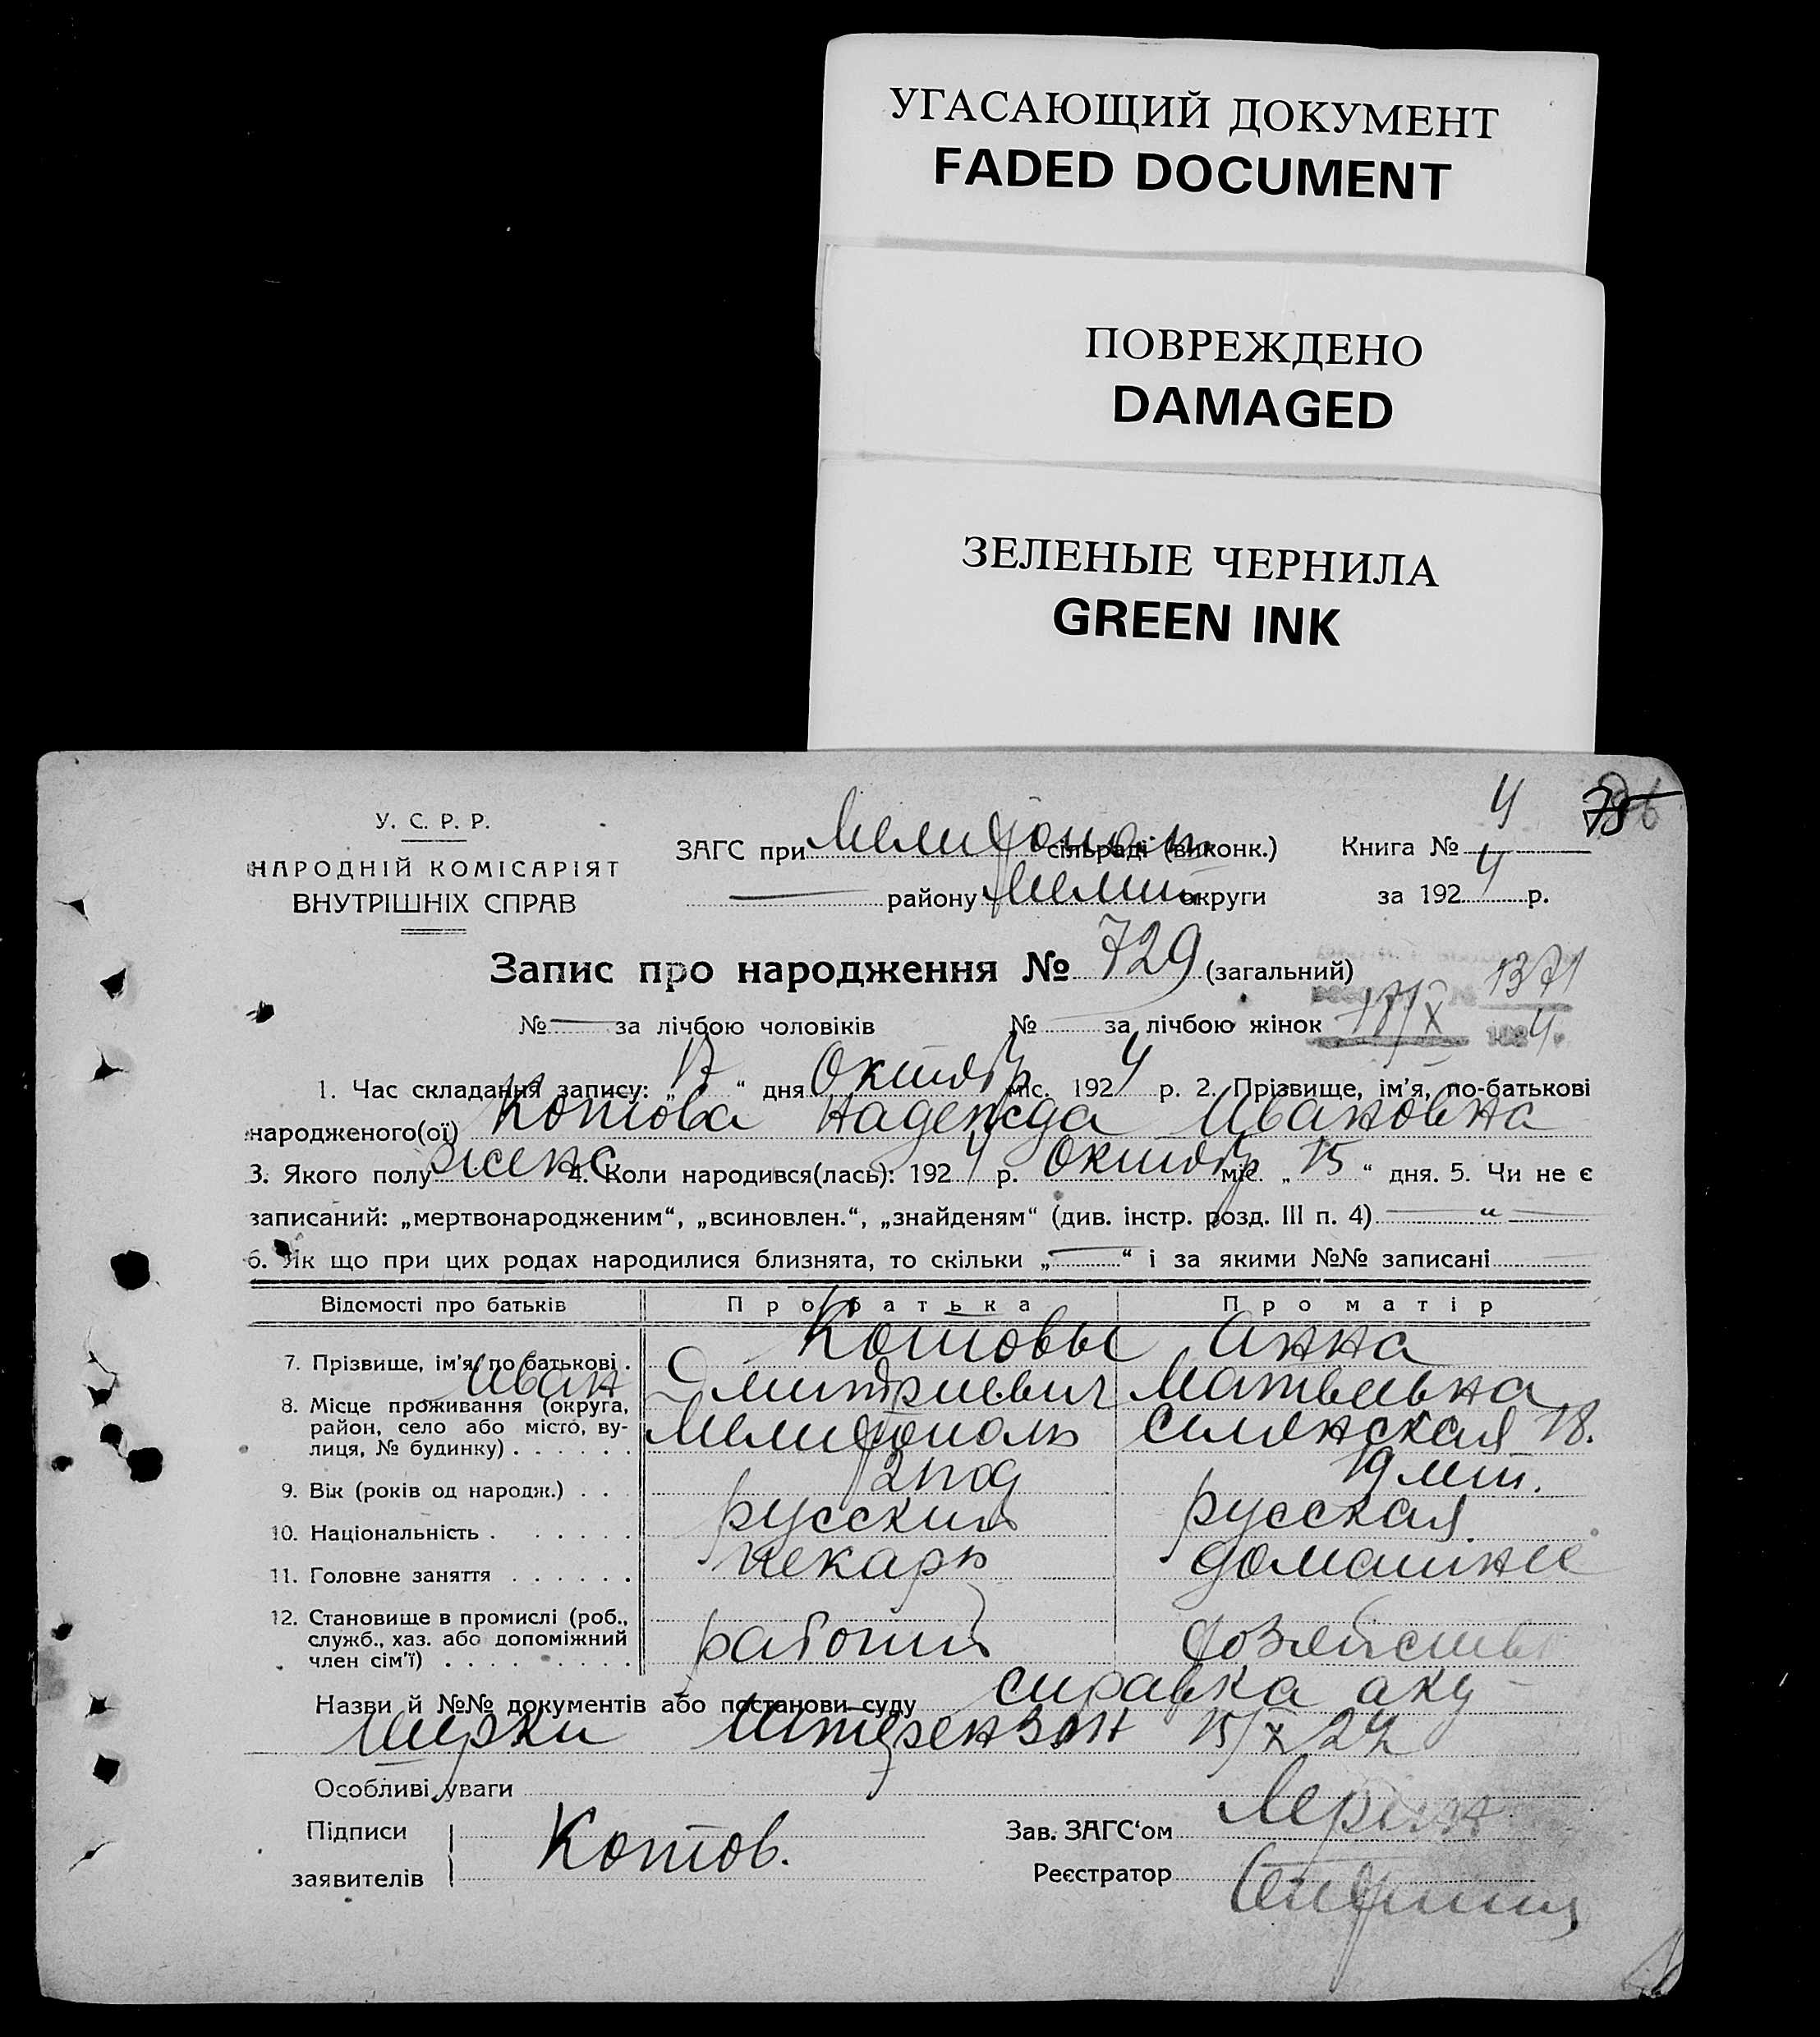 УГАСАЮЩИЙ ДОКУМЕНТ
FADED DOCUMENT
ПОВРЕЖДЕНО
DAMAGED
ЗЕЛЕНЫЕ ЧЕРНИЛА
GREEN INK
У. С. Р. Р.
НАРОДНІЙ КОМІСАРІЯТ
ВНУТРІШНІХ СПРАВ
ЗАГС при Мелитополь сільраді (виконк.) Книга № 4
району Мелит округи за 1924 р.
Запис про народження № 729 (загальний)
1371
№ за лічбою чоловіків № за лічбою жінок 17/X 1924 р.
1. Час складання запису: „17“ дня Октябр міс. 1924 р. 2. Прізвище, ім'я, по-батькові
народженого(ої) Котова Надежда Ивановна
3. Якого полу женс 4. Коли народився(лась): 1924 р. Октябр міс. „15“ дня. 5. Чи не є
записаний: „мертвонародженим“, „всиновлен.“, „знайденям“ (див. інстр. розд. III п. 4) — “ —
6. Як що при цих родах народилися близнята, то скільки „—“ і за якими №№ записані
Відомості про батьків Про батька Про матір
7. Прізвище, ім'я, по батькові . Котовы Анна
Иван Дмитриевич Матвеевна
8. Місце проживання (округа,
район, село або місто, ву-
лиця, № будинку) . . . . . . Мелитополь Селянская 18.
9. Вік (років од народж.) . . . 21 год 19 лет.
10. Національність . . . . . . русский русская
11. Головне заняття . . . . . . пекарь домашнее
12. Становище в промислі (роб.,
служб., хаз. або допоміжний
член сім'ї) . . . . . . . . . рабочий хозяйство
Назви й №№ документів або постанови суду справка аку-
шерки Штерензон 15/X 24
Особливі уваги
Підписи
заявителів Котов.
Зав. ЗАГС'ом
Реєстратор